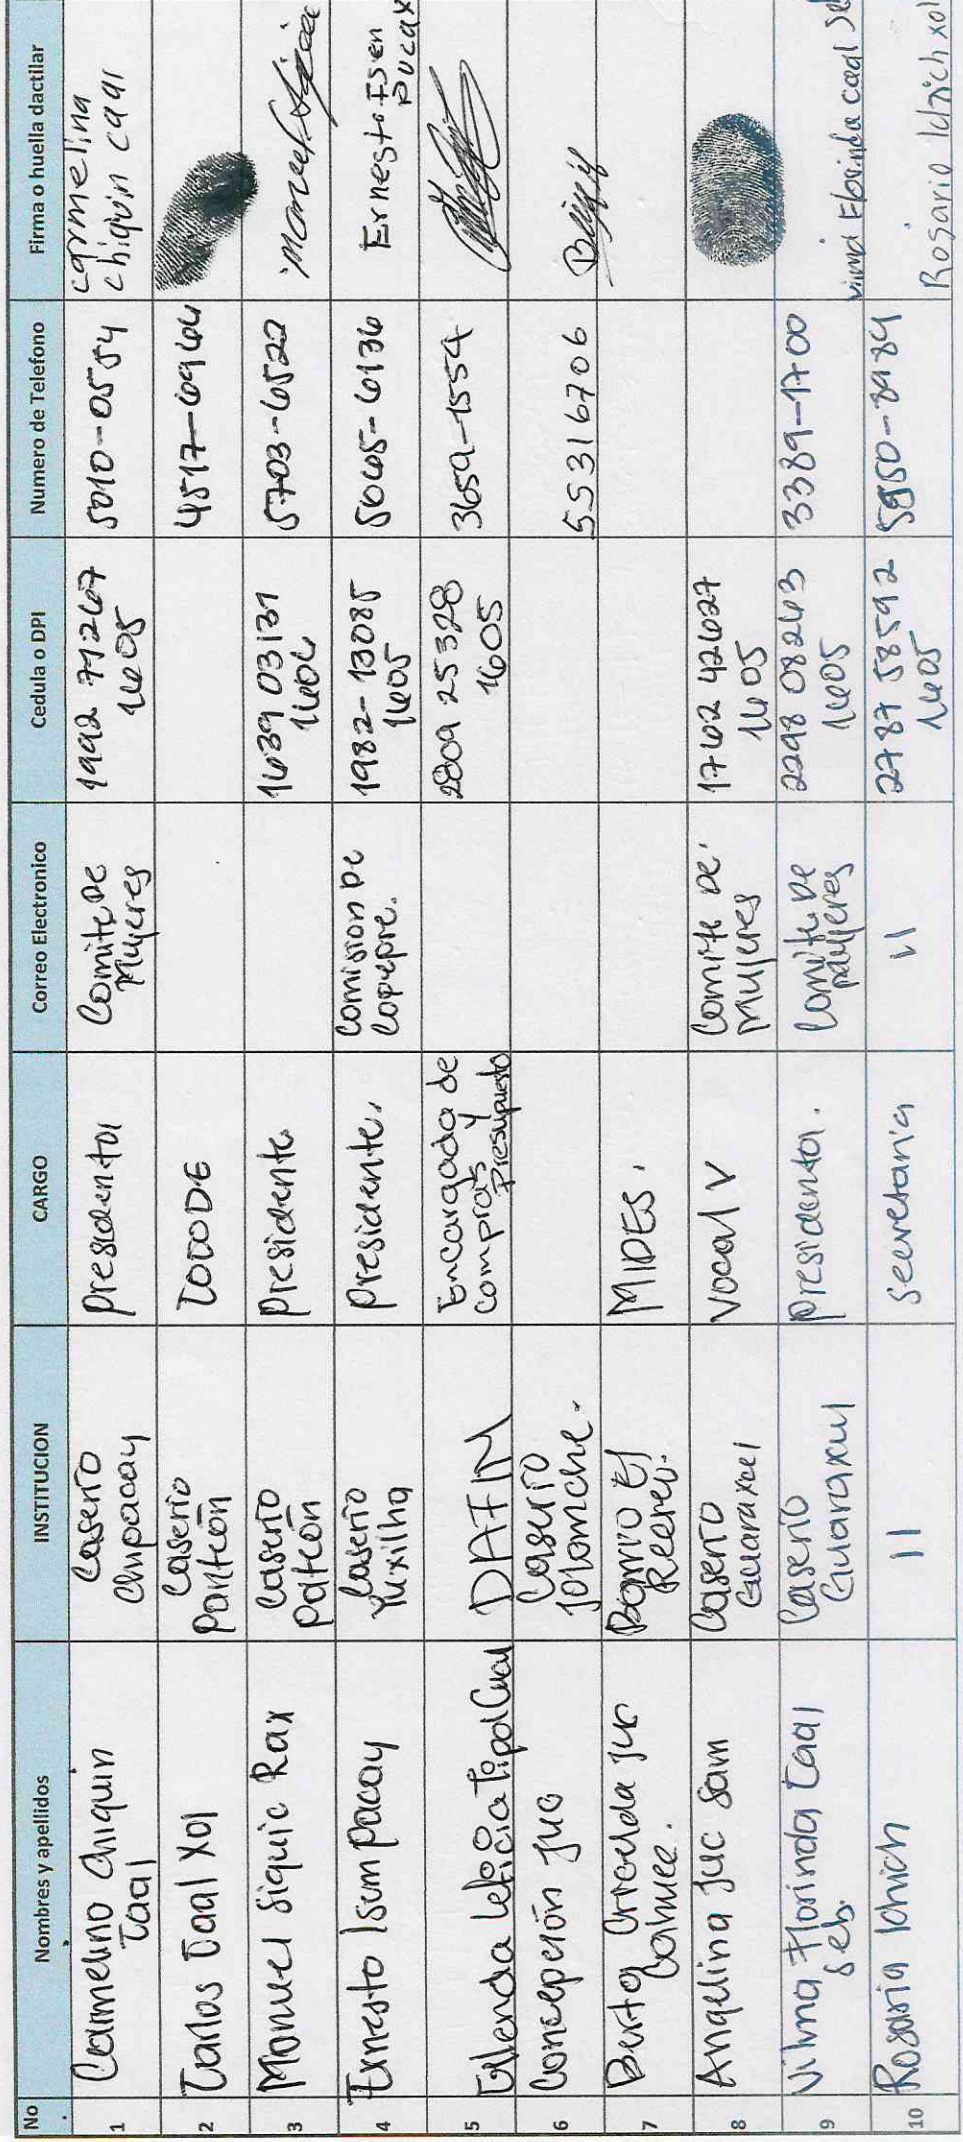 No. Nombres y apellidos INSTITUCION CARGO Correo Electronico Cedula o DPI Numero de Telefono Firma o huella dactilar
1 Carmelino Chiquin Caal Caserio Chipacay Presidenta Comite De Mujeres 1992 71267 1605 5010-0554 carmelina chiquin caal
2 Carlos Caal Xol Caserio Panteón COCODE 4517-6964
3 Manuel Siquic Rax Caserio pateón Presidente 1639 03131 1606 5703-6522
4 Ernesto Isem pacay Caserio Yuxilha presidente. Comision De Copepre. 1982-13085 1605 5065-6136 Ernesto Isen pucax
5 Glenda Leticia Tipol Cual DAFIM Encargada de compras y Presupuesto 2809 25328 1605 3659-1554
6 Concepción Juc Caserio Jolomche. 55316706
7 Berta Juc Barrio El MIDES.
8 Angelina Juc Sam Caserio Guaraxul Vocal V Comite De Mujeres 1762 42627 1605
9 Vilma Florinda Caal Seb. Caserio Guaraxul presidenta. Comite De Mujeres 2298 08263 1605 3389-1700 Vilma Florinda caal Seb
10 Rosaria Ichich 11 seecretaria 11 2787 58592 1605 5950-2989 Rosario Ichich xol